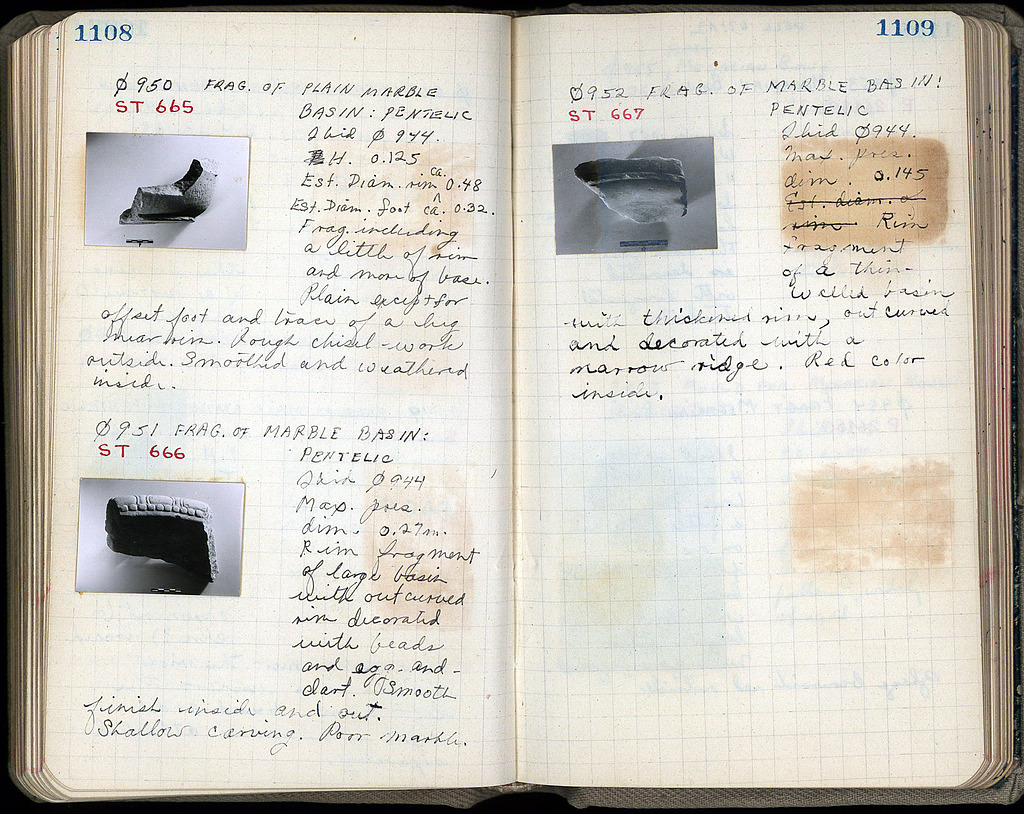 1108
Φ950 FRAG. OF PLAIN MARBLE
ST 665
BASIN: PENTELIC
Ibid Φ944.
H. 0.125
Est. Diam. rim ca. 0.48
Est. Diam. foot ca. 0.32.
Frag. including
a little of rim
and more of base.
Plain except for
offset foot and trace of a lug
near rim. Rough chisel-work
outside. Smoothed and weathered
inside.
Φ951 FRAG. OF MARBLE BASIN:
ST 666
PENTELIC
Ibid Φ944
Max. pres.
dim. 0.27m.
Rim fragment
of large basin
with outcurved
rim decorated
with beads
and egg-and-
dart. Smooth
finish inside and out.
Shallow carving. Poor marble.
1109
Φ952 FRAG. OF MARBLE BASIN:
ST 667
PENTELIC
Ibid Φ944.
Max. pres.
dim. 0.145
Est. diam. of
rim Rim
fragment
of a thin-
walled basin
with thickined rim, outcurved
and decorated with a
narrow ridge. Red color
inside.